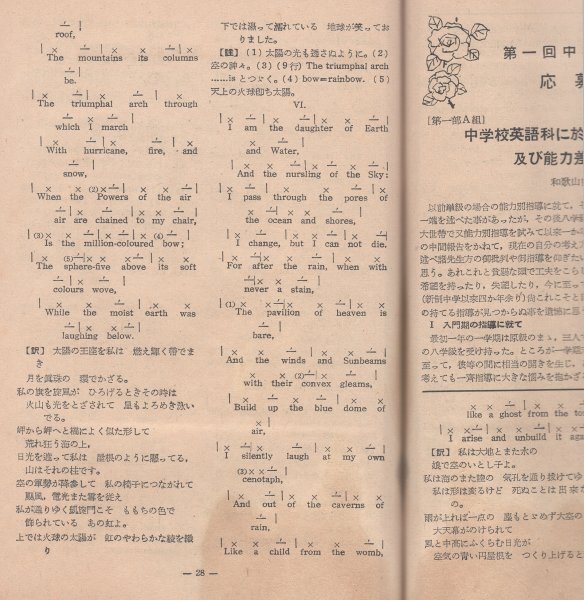 roof,
The mountains its columns
be.
The triumphal arch through
which I march
With hurricane, fire, and
snow,
When the Powers of the air
are chained to my chair,
Is the million-coloured bow;
The sphere-five above its soft
colours wove,
While the moist earth was
laughing below.
【訳】 太陽の王座を私は 燃え輝く帯でま
き
月を真珠の 環でかざる。
私の旗を旋風が ひろげるときその時は
火山も光をとざされて 星もよろめき泳い
でる。
岬から岬へと橋によく似た形して
荒れ狂う海の上,
日光を遮って私は 屋根のように懸ってる,
山はそれの柱です。
空の軍勢が降参して 私の椅子につながれて
颶風, 電光また雪を従え
私が通りゆく凱旋門こそ もももちの色で
飾られている あの虹よ。
上では火球の太陽が 虹のやわらかな綾を織
り
下では湿って濡れている 地球が笑ってお
りました。
【註】 (1) 太陽の光も透さぬように。(2)
空の神々。(3) (9行) The triumphal arch
……is とつゞく。(4) bow=rainbow. (5)
天上の火球即ち太陽。
VI.
I am the daughter of Earth
and Water,
And the nursling of the Sky:
I pass through the pores of
the ocean and shores,
I change, but I can not die.
For after the rain, when with
never a stain,
The pavilion of heaven is
bare,
And the winds and Sunbeams
with their convex gleams,
Build up the blue dome of
air,
I silently laugh at my own
cenotaph,
And out of the caverns of
rain,
Like a child from the womb,
— 28 —
第一回中
応募
[第一部A組]
中学校英語科に於
及び能力差
和歌山
以前単級の場合の能力別指導に就て,
一端を述べた事があったが, その後八学級
大世帯で又能力別指導を試みて以来一か年
の中間報告をかねて, 現在の自分の考え
述べ諸先生方の御批判や御指導を仰ぎたい
思う。あれこれと貧弱な頭で工夫をこらし
希望を持ったり, 失望したり, 今に至って
(新制中学以来四か年余り) 尚これこそと
の持てる指導が見つからぬ事を遺憾に思う
I 入門期の指導に就て
最初一年の一学期は原級のまゝ, 三人で
の八学級を受け持った。ところが一学期
至って, 彼等の間に相当の開きを生じ,
考えても一斉指導に大きな悩みを抱かざ
like a ghost from the tomb
I arise and unbuild it again
【訳】 私は大地とまた水の
娘で空のいとし子よ。
私は海のまた陸の 気孔を通り抜けてゆ
私は形は変るけど 死ぬことは出来
の。
雨が上れば一点の 塵もとゞめず大空の
大天幕がのけられて
風と中高にふくらむ日光が
空気の青い円屋根を つくり上げると